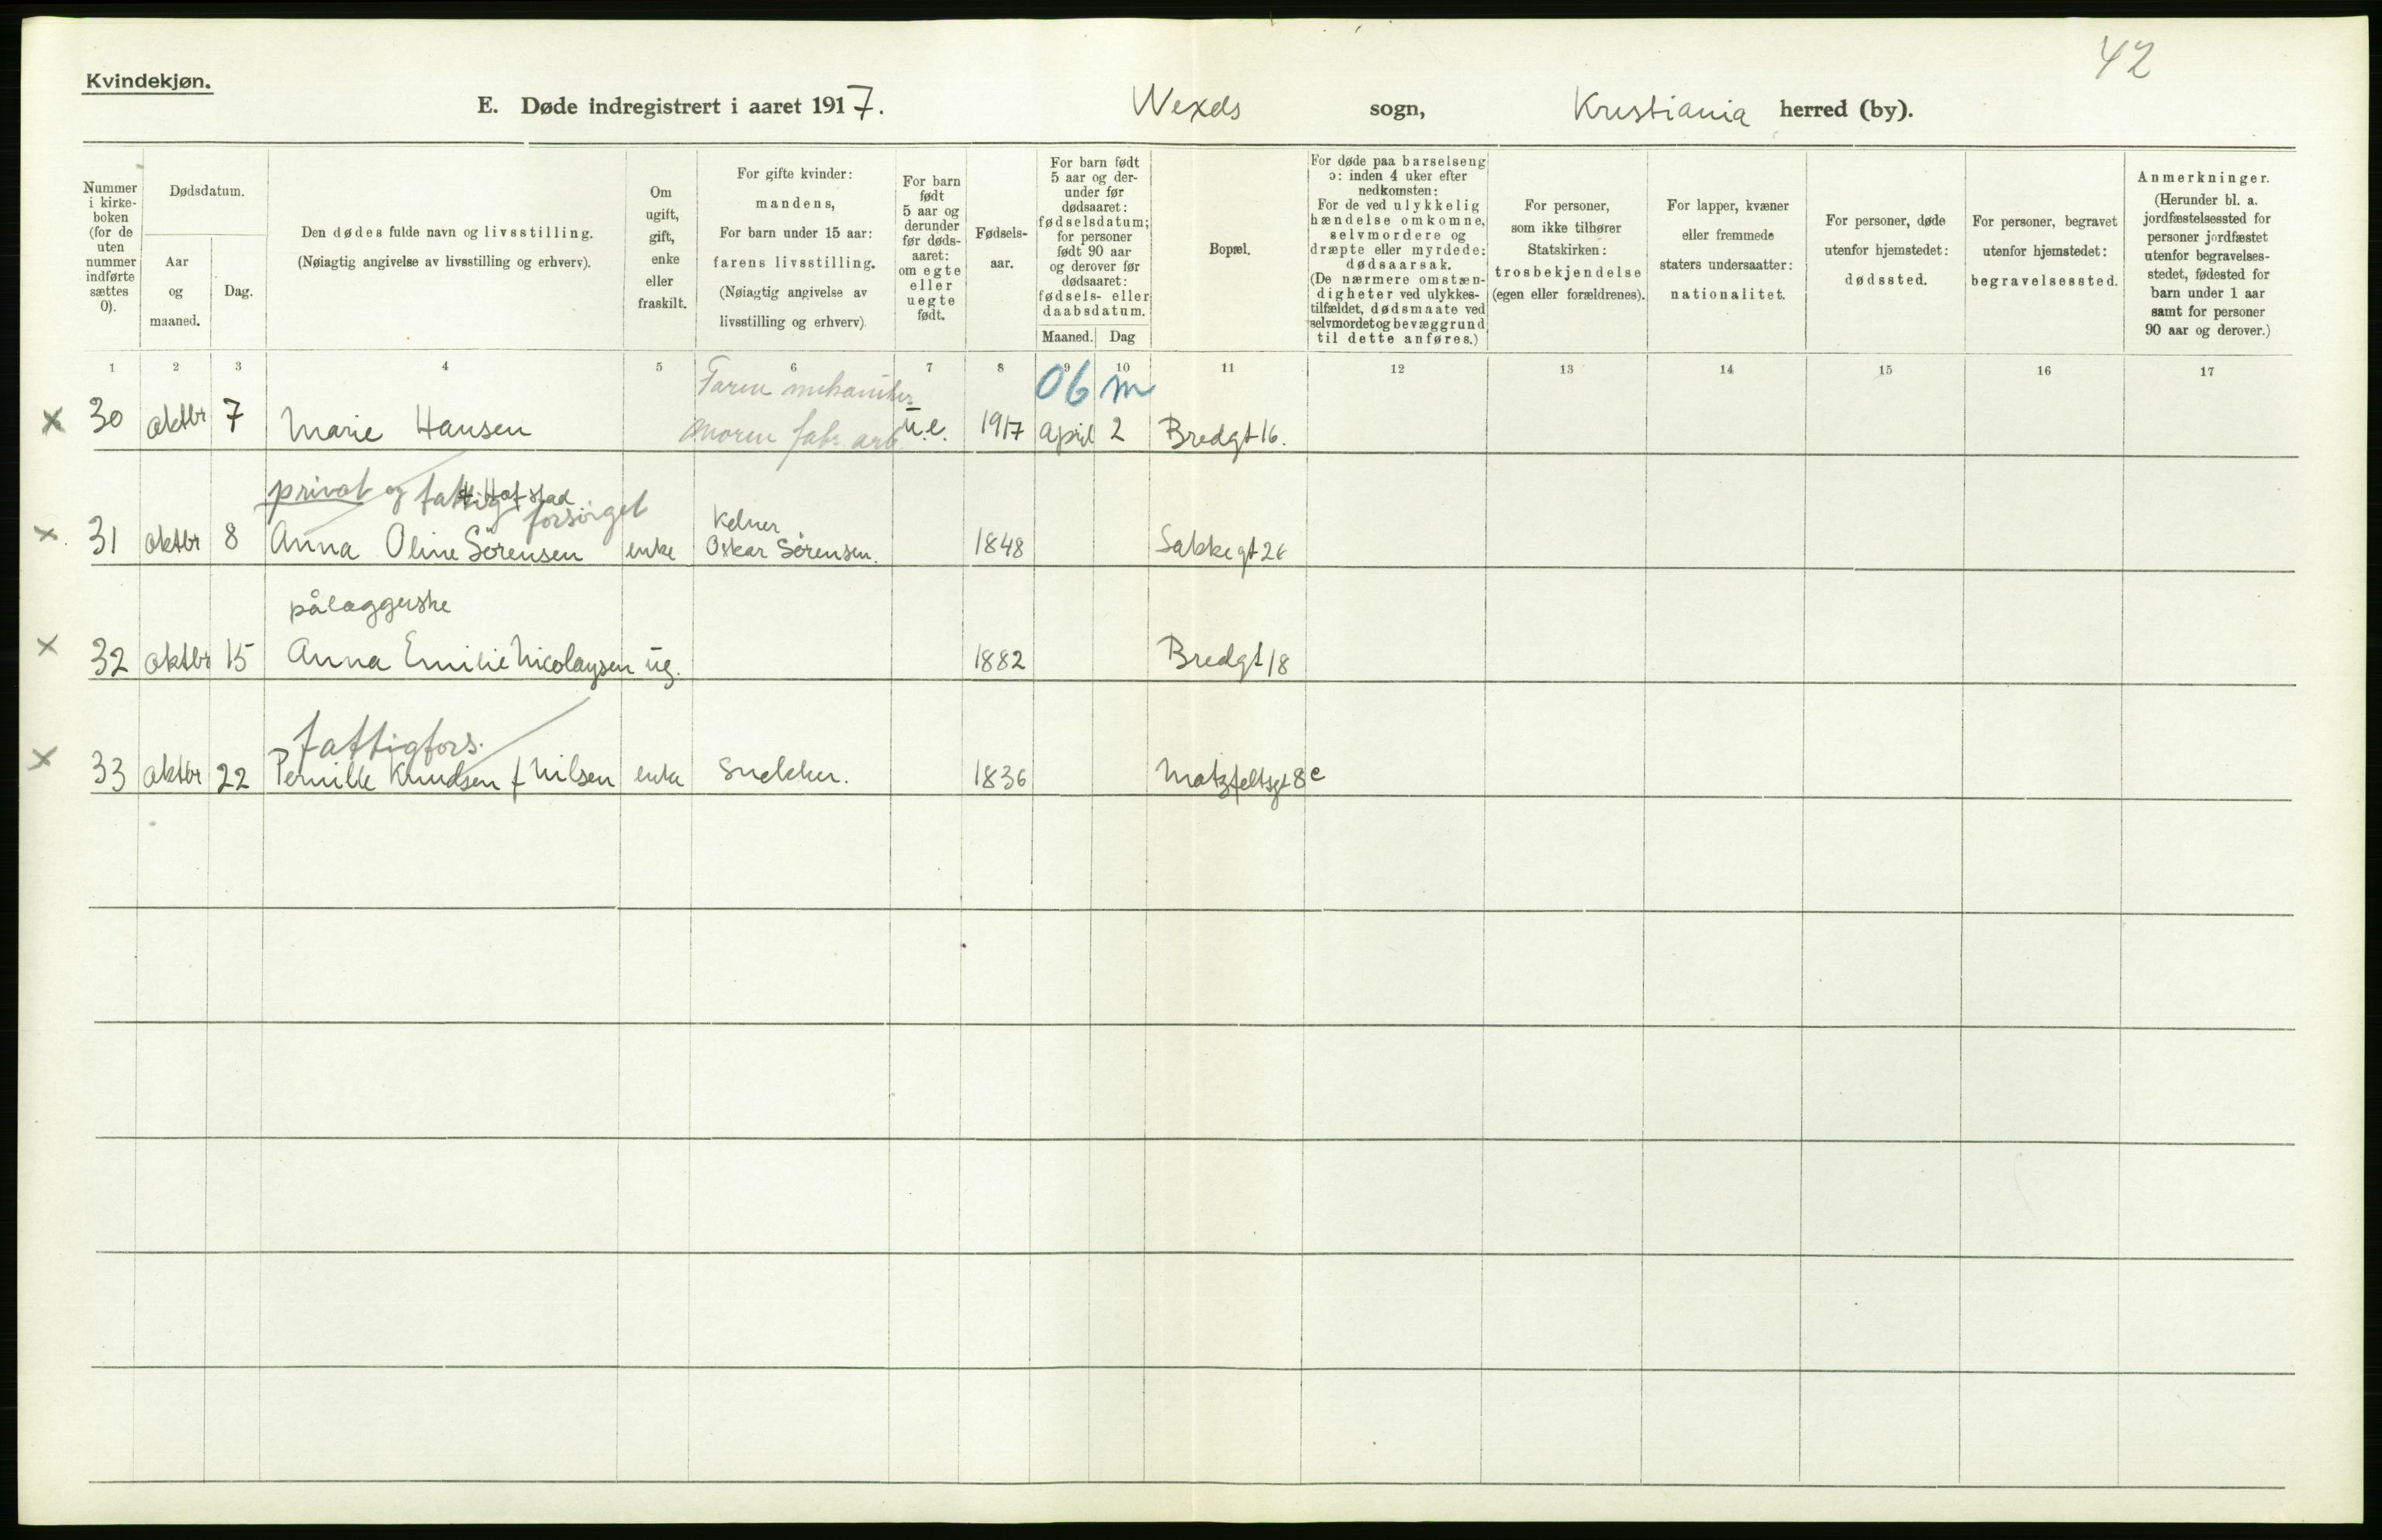 42
Kvindekjøn.
E. Døde indregistrert i aaret 1917. Wexels sogn, Kristiania herred (by).
Nummer i kirke-boken (for de uten nummer indførte sættes 0).
Dødsdatum.
Aar og maaned.
Dag.
Den dødes fulde navn og livsstilling.
(Nøiagtig angivelse av livsstilling og erhverv).
Om ugift, gift, enke eller fraskilt.
For gifte kvinder:
mandens,
For barn under 15 aar:
farens livsstilling.
(Nøiagtig angivelse av
livsstilling og erhverv)
For barn født 5 aar og derunder før døds-aaret: om egte eller uegte født.
Fødsels-aar.
For barn født 5 aar og der-under før dødsaaret: fødselsdatum; for personer født 90 aar og derover før dødsaaret: fødsels- eller daabsdatum.
Maaned. Dag
Bopæl.
For døde paa barselseng
ɔ: inden 4 uker efter
nedkomsten:
For de ved ulykkelig
hændelse omkomne,
selvmordere og
dræpte eller myrdede:
dødsaarsak.
(De nærmere omstæn-
digheter ved ulykkes-
tilfældet, dødsmaate ved
selvmordet og bevæggrund
til dette anføres.)
For personer,
som ikke tilhører
Statskirken:
trosbekjendelse
(egen eller forældrenes).
For lapper, kvæner
eller fremmede
staters undersaatter:
nationalitet.
For personer, døde
utenfor hjemstedet:
dødssted.
For personer, begravet
utenfor hjemstedet:
begravelsessted.
Anmerkninger.
(Herunder bl. a.
jordfæstelsessted for
personer jordfæstet
utenfor begravelses-
stedet, fødested for
barn under 1 aar
samt for personer
90 aar og derover.)
1 2 3 4 5 6 7 8 9 10 11 12 13 14 15 16 17
Faren mekaniker 06 m
x 30 oktbr 7 Marie Hansen moren fabr. arb. u.e. 1917 april 2 Bredgt 16.
privat og fattig forsørget
f. Hofstad
Kelner
x. 31 oktbr 8 Anna Oline Sørensen enke Oskar Sørensen. 1848 Sakkegt 26
påleggerske
x 32 oktbr 15 Anna Emilie Nicolaysen ug. 1882 Bredgt 18
fattigfors.
x 33 oktbr 22 Pernille Knudsen f Nilsen enke Snekker. 1836 Motzfeltsgt 8c